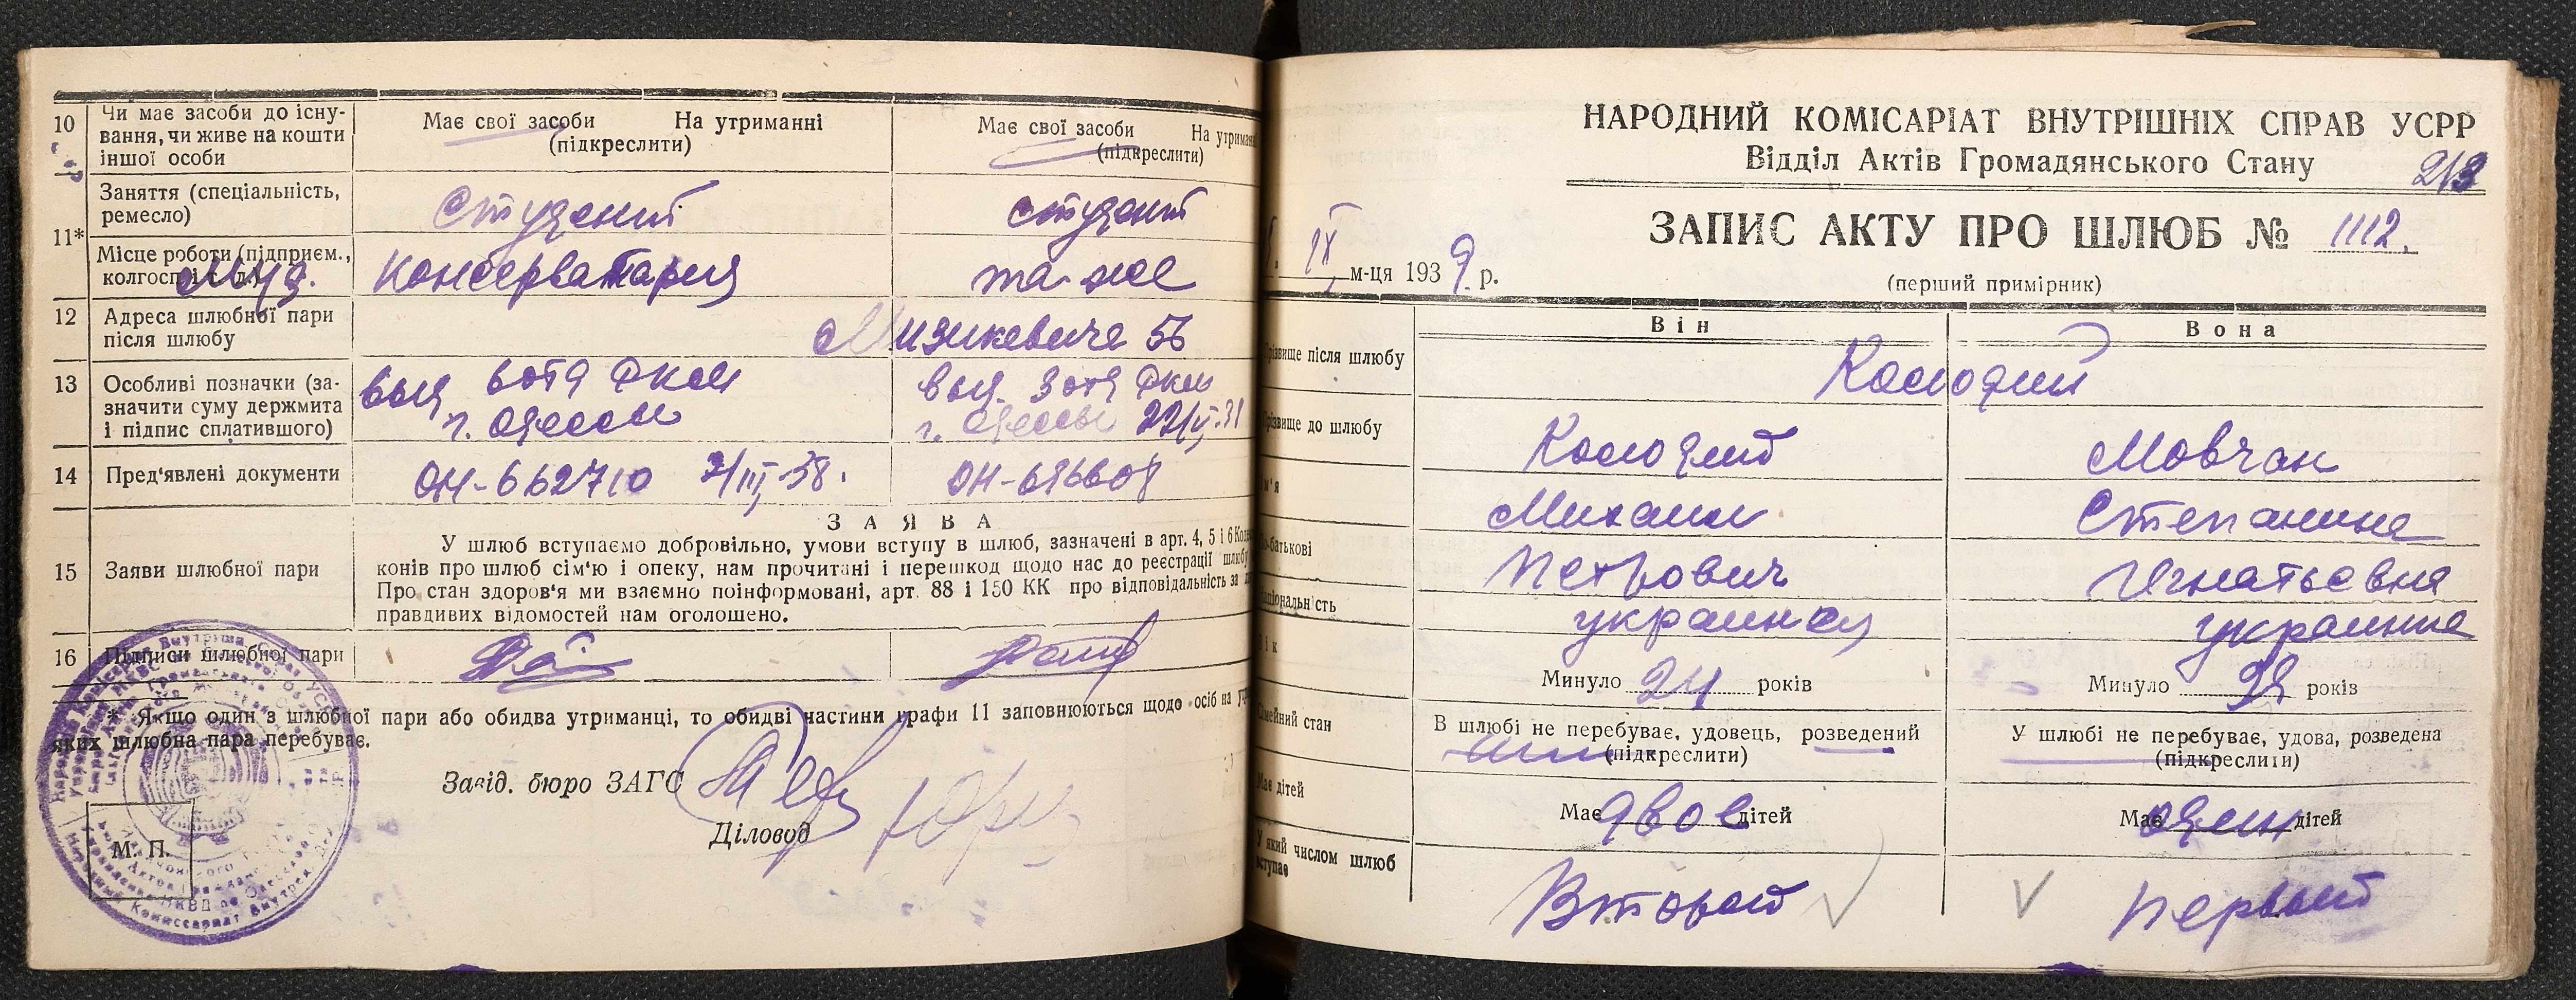 10 Чи має засоби до існу-
вання, чи живе на кошти
іншої особи
Має свої засоби На утриманні
(підкреслити)
Має свої засоби На утриман
(підкреслити)
11*
Заняття (спеціальність,
ремесло)
Студент
студент
Місце роботи (підприєм.,
колгосп
Муз. консерватория
та-же
12 Адреса шлюбної пари
після шлюбу
Мизикевича 56
13 Особливі позначки (за-
значити суму держмита
і підпис сплатившого)
г. Одессы
г. Одессы
14 Пред'явлені документи
ОН-662710
ОН-696608
ЗАЯВА
15 Заяви шлюбної пари
У шлюб вступаємо добровільно, умови вступу в шлюб, зазначені в арт. 4, 5 і 6
конів про шлюб сім'ю і опеку, нам прочитані і перешкод щодо нас до реєстрації шлюбу
Про стан здоров'я ми взаємно поінформовані, арт. 88 і 150 КК про відповідальність за
правдивих відомостей нам оголошено.
16 Підписи шлюбної пари
* Якщо один з шлюбної пари або обидва утриманці, то обидві частини графи 11 заповнюються щодо осіб на
яких шлюбна пара перебуває.
Завід. бюро ЗАГС
Діловод
М. П.
НАРОДНИЙ КОМІСАРІАТ ВНУТРІШНІХ СПРАВ УСРР
Відділ Актів Громадянського Стану
213
ЗАПИС АКТУ ПРО ШЛЮБ № 1112.
IX м-ця 1939 р.
(перший примірник)
Він
Вона
після шлюбу
Колодий
до шлюбу
Колодий
Мовчан
Михаил
Степанина
батькові
Петрович
Игнатьевна
украинец
украинка
Минуло 24 років
Минуло років
стан
В шлюбі не перебуває, удовець, розведений
(підкреслити)
У шлюбі не перебуває, удова, розведена
(підкреслити)
дітей
Має двое дітей
Має один дітей
У який числом шлюб
вступає
Второй
первый